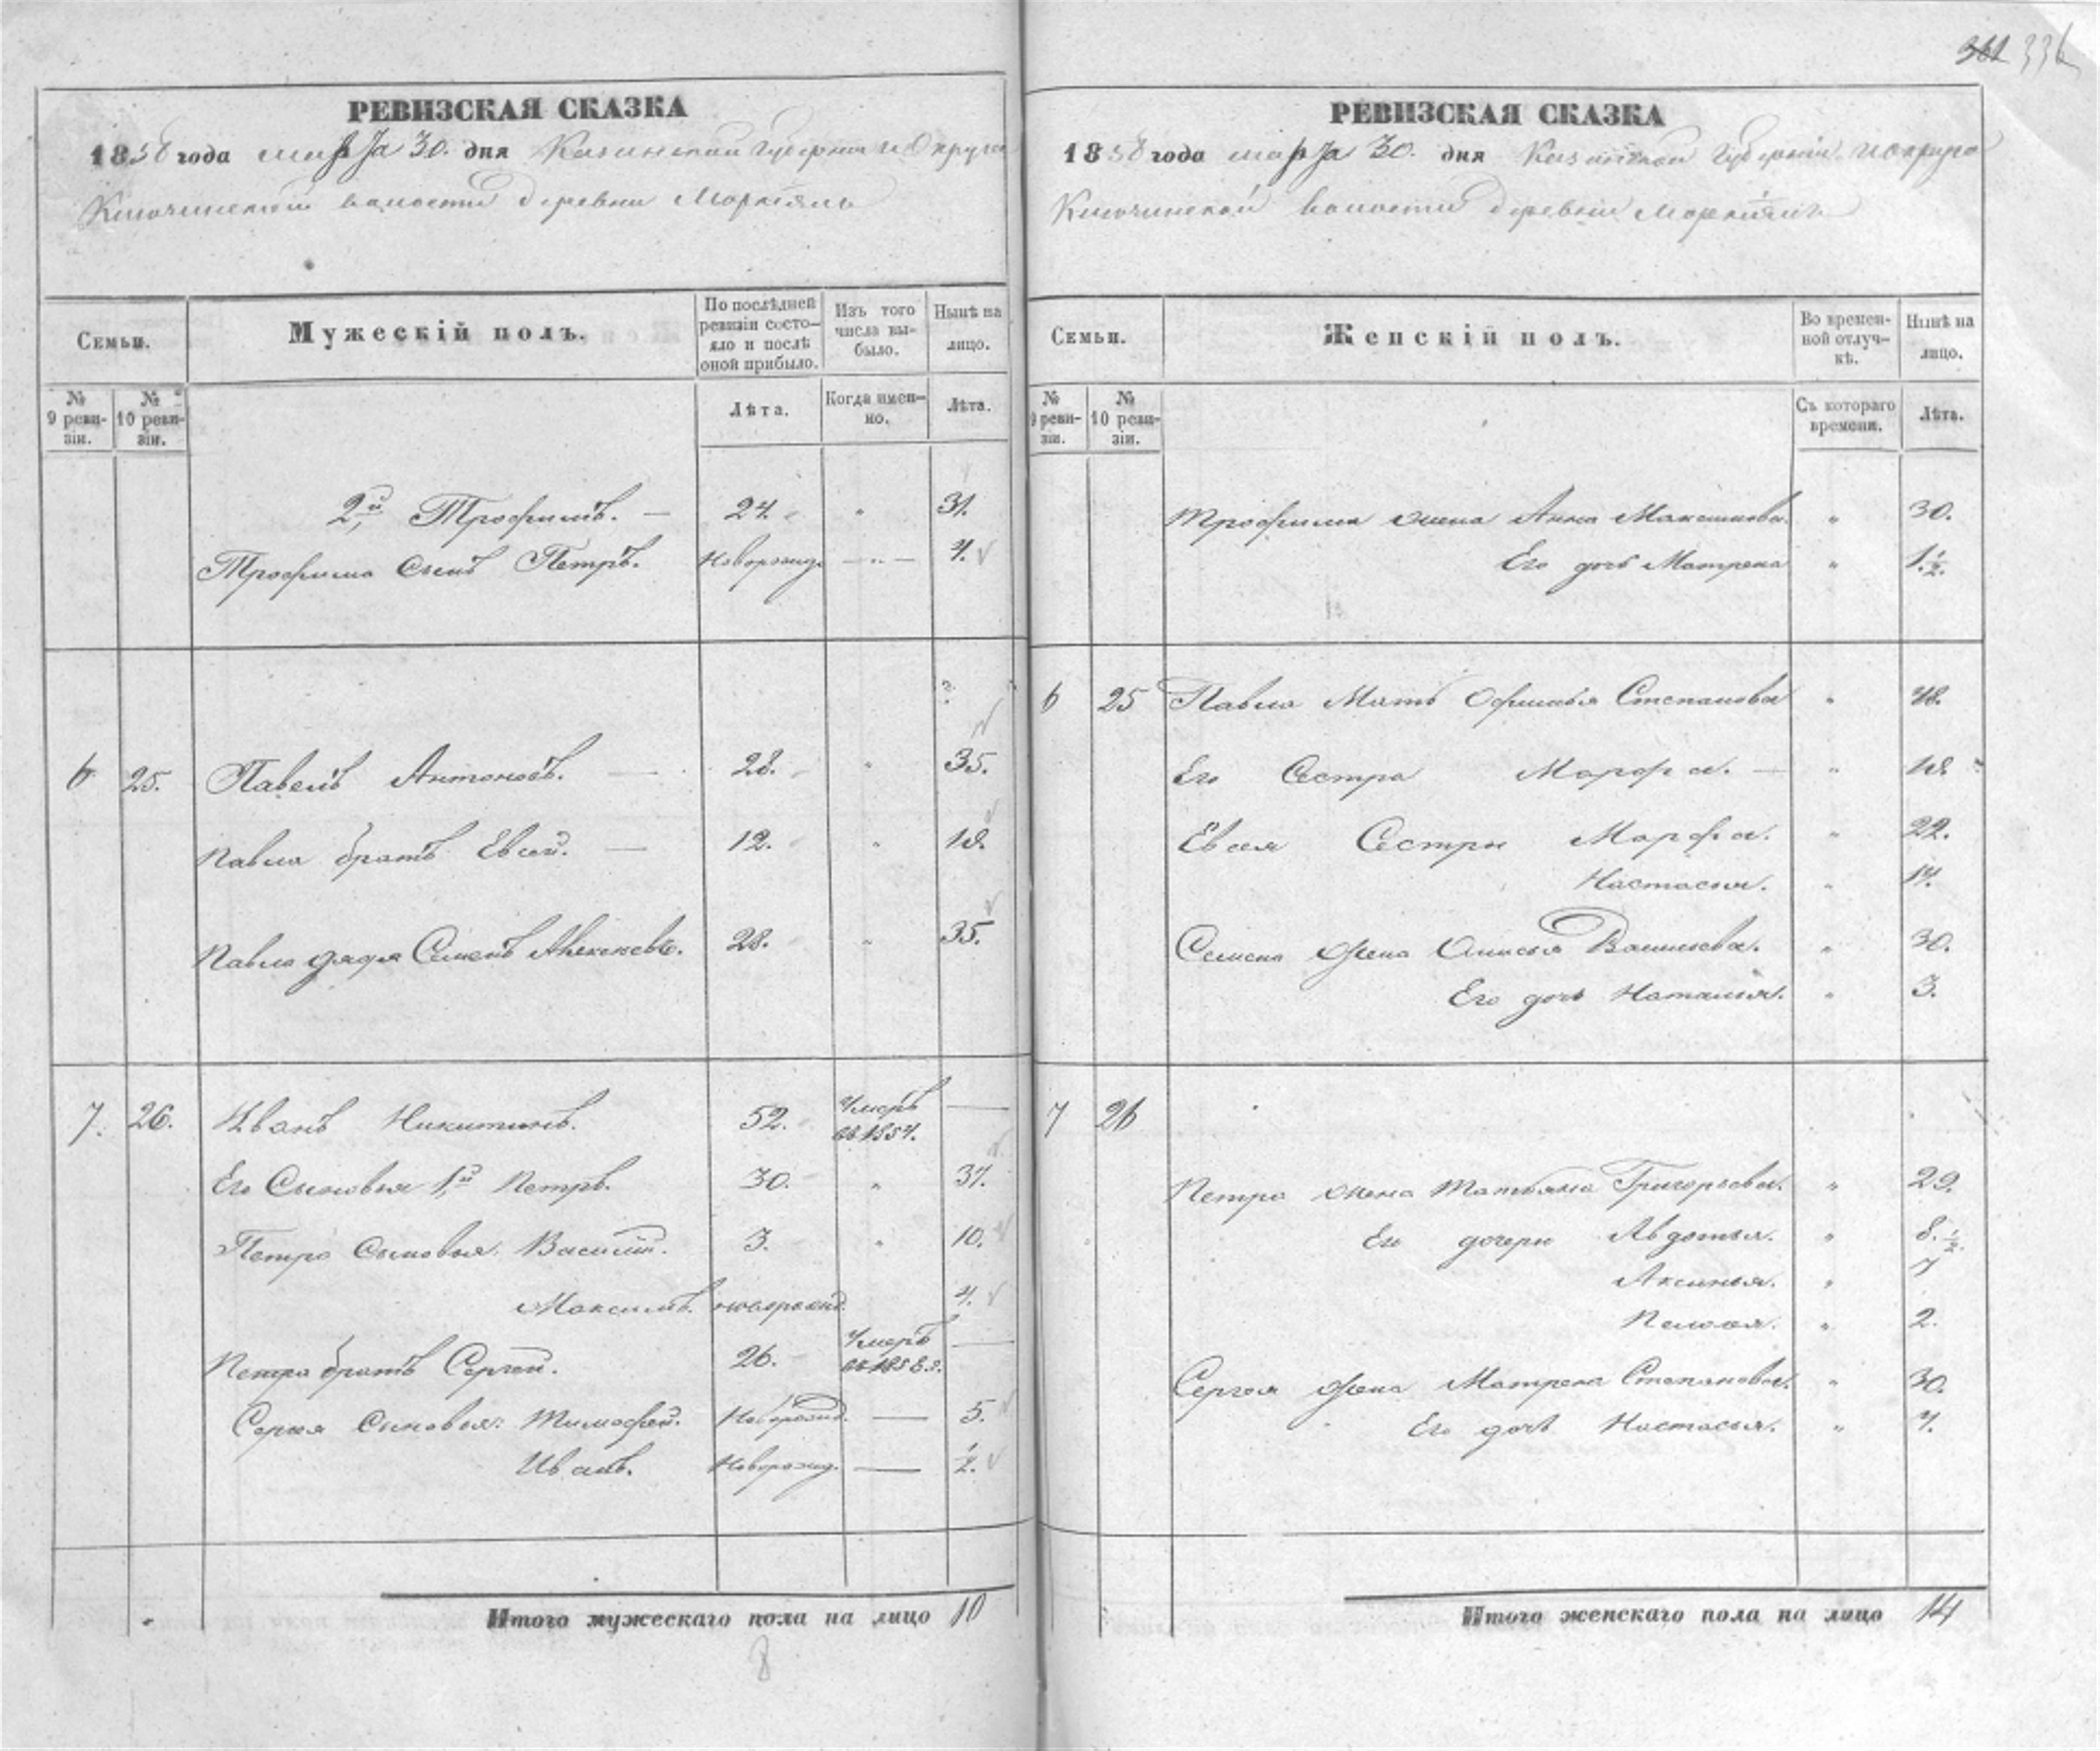 336
РЕВИЗСКАЯ СКАЗКА
1858 года марта 30. дня Казанской губернии и Округа
волости деревни
Семьи.
Мужескій полъ.
По послѣдней ревизіи состо-яло и послѣ оной прибыло.
Изъ того числа вы-было.
Нынѣ на лицо.
№ 9 реви-зіи.
№ 10 реви-зіи.
Лѣта.
Когда имен-но.
Лѣта.
2й Трофимъ. — 24. " 31.
Трофима сынъ Петръ. Новорожд. — " — 4.
6 25. Павелъ Антоновъ. — 28. " 35.
Павла братъ Евсей. — 12. " 19.
Павла дядя Семенъ Алексѣевъ. 28. " 35.
7. 26. Иванъ Никитинъ. 52. Умеръ въ 1854. —
Его Сыновья 1й Петръ. 30. " 37.
Петра Сыновья: Василій. 3. " 10.
Максимъ. новорожд. 4.
Петра братъ Сергей. 26. Умеръ въ 1858 г. —
Сергея Сыновья: Тимофей. Новорожд. — 5.
Иванъ. Новорожд. — 1/2.
Итого мужескаго пола на лицо 10
8
РЕВИЗСКАЯ СКАЗКА
1858 года марта 30. дня Казанской губерніи и округа
волости деревни
Семьи.
Женскій полъ.
Во времен-ной отлуч-кѣ.
Нынѣ на лицо.
№ 9 реви-зіи.
№ 10 реви-зіи.
Съ котораго времени.
Лѣта.
Трофима жена Анна Максимова " 30.
Его дочь Матрена " 1.1/2.
6 25 Павла Мать Офимья Степанова " 48.
Его Сестра Марфа. — " 18.
Евсея Сестры Марфа. " 22.
Настасья. " 14.
Семена жена Анисья Васильева. " 30.
Его дочь Наталья. " 3.
7 26
Петра жена Татьяна Григорьева. " 29.
Его дочери Авдотья. " 8.1/2.
Аксинья. " 7
Пелагея. " 2.
Сергея жена Матрена Степанова. " 30.
Его дочь Настасья. " 4.
Итого женскаго пола на лицо 14